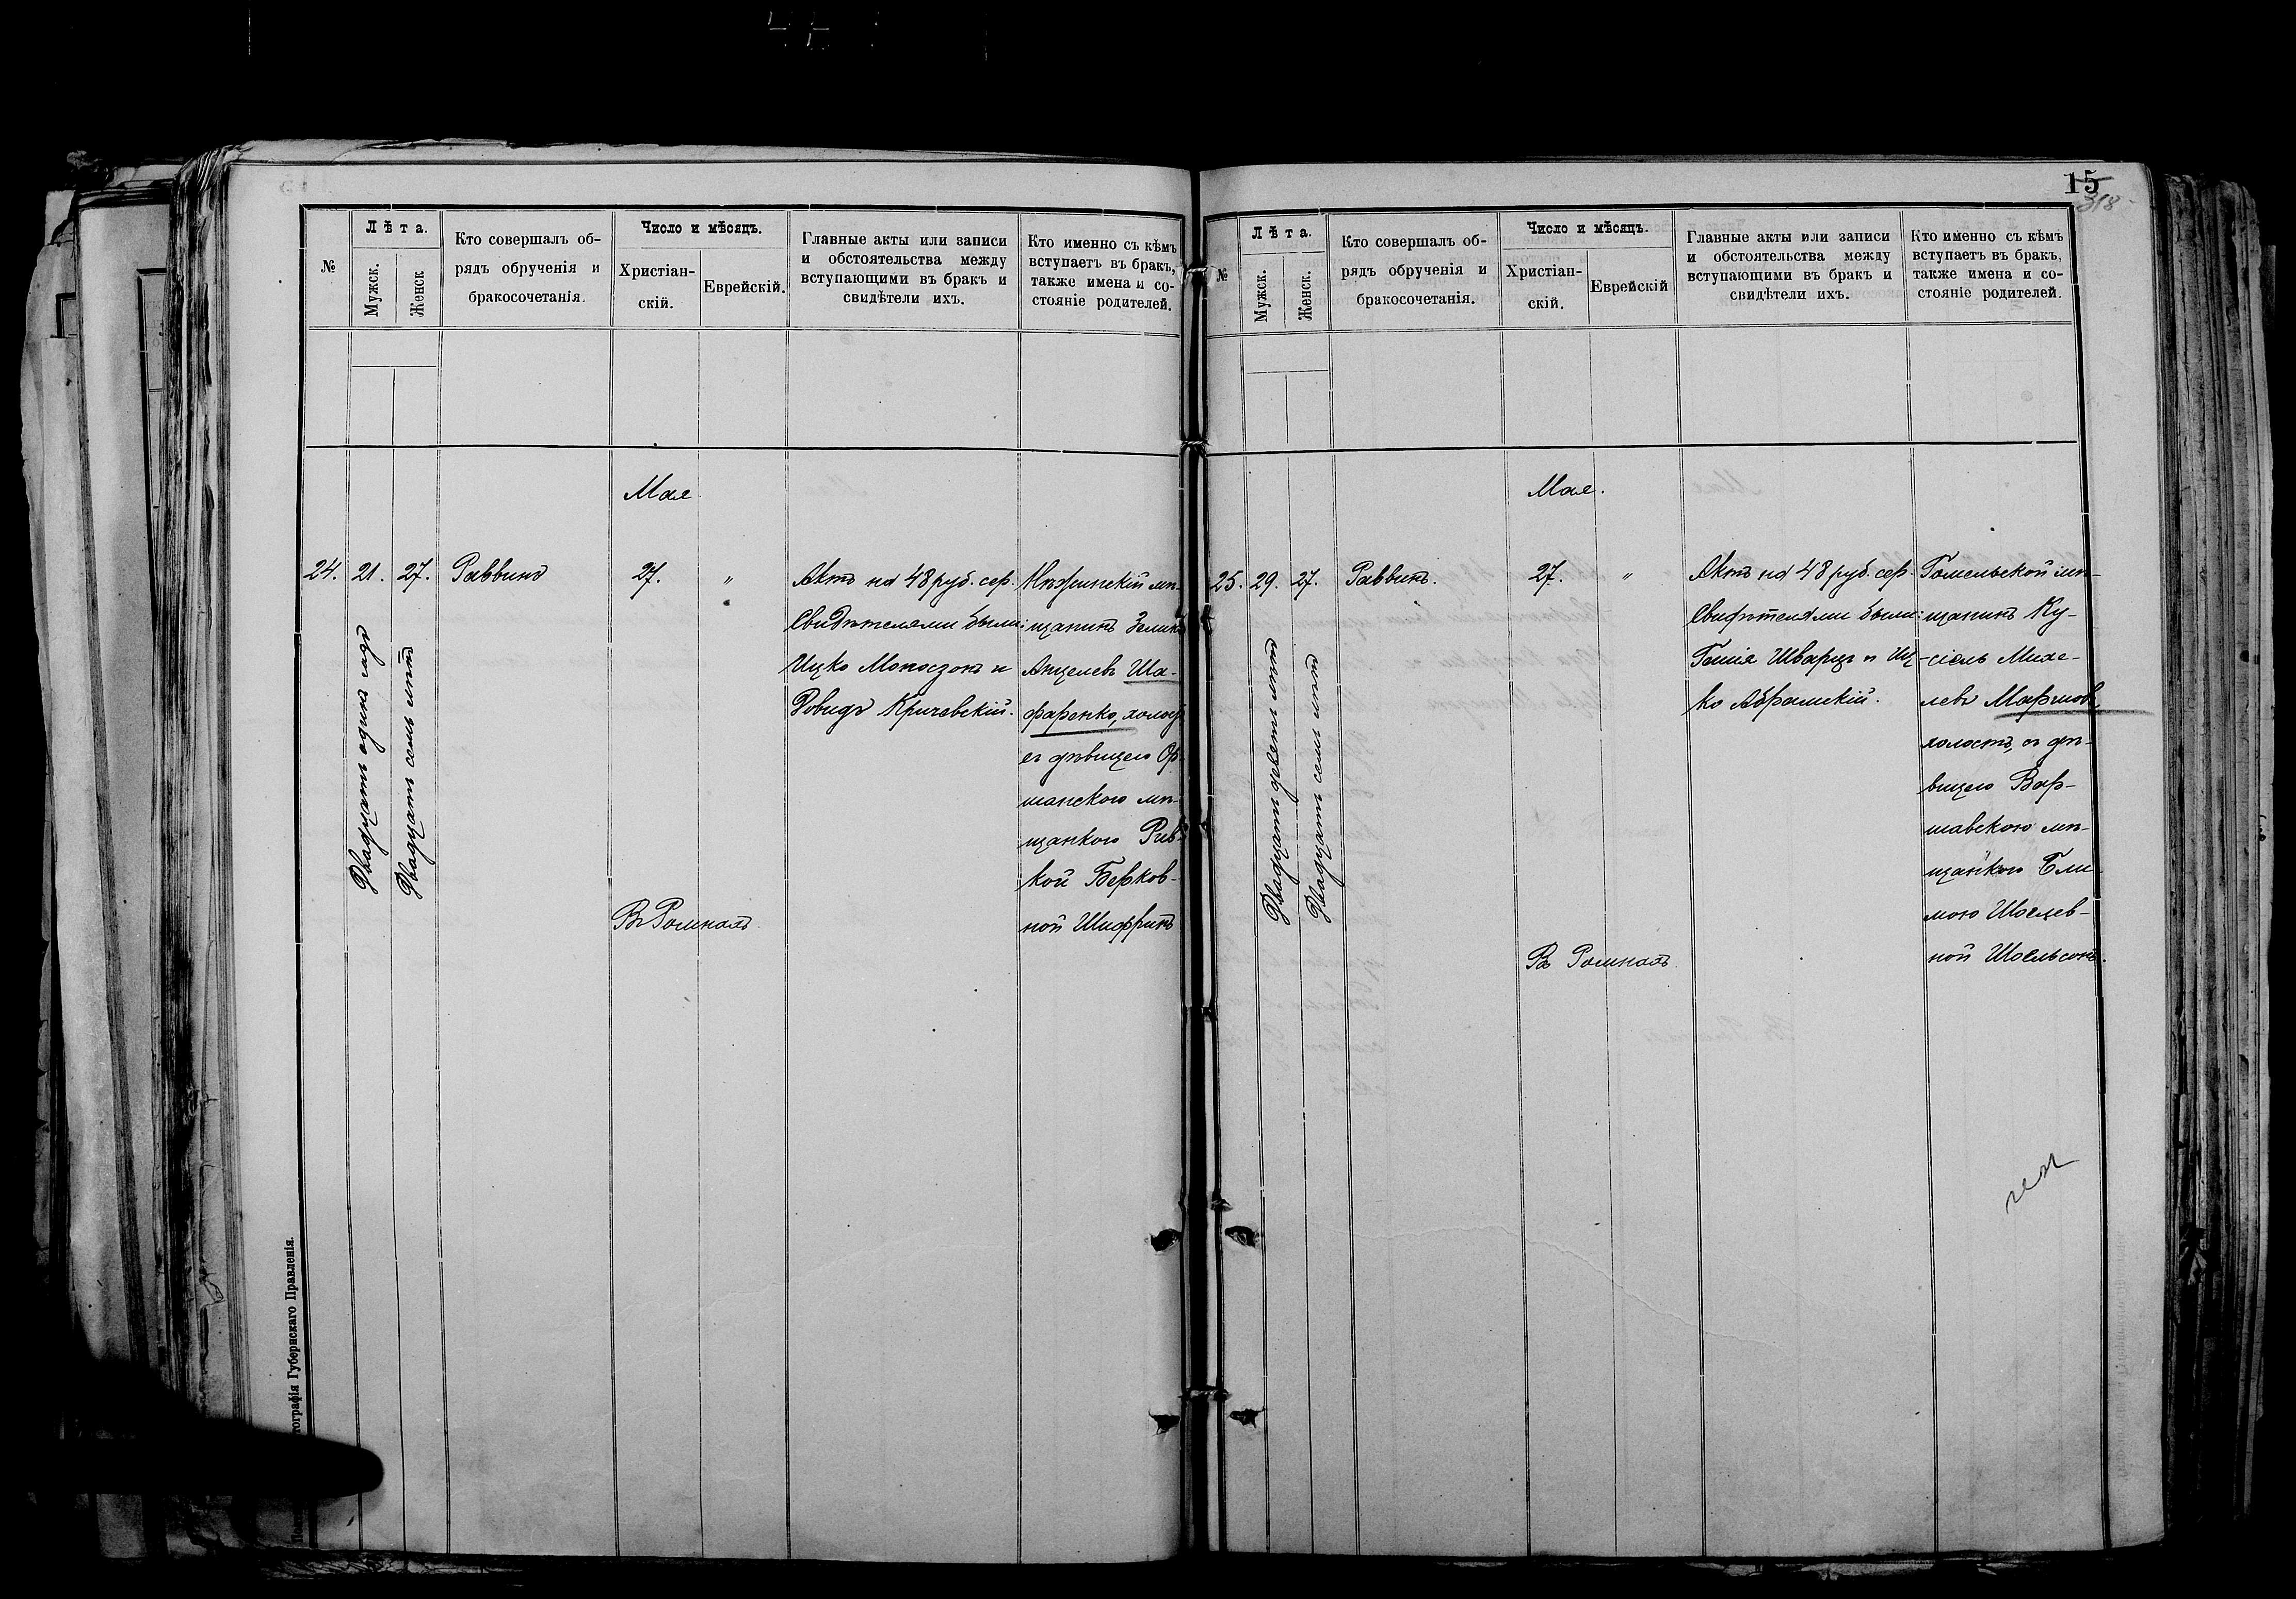 №
Лѣта.
Мужск.
Женск
Кто совершалъ об-
рядъ обрученія и
бракосочетанія.
Число и мѣсяцъ.
Христіан-
скій.
Еврейскій.
Главные акты или записи
и обстоятельства между
вступающими въ бракъ и
свидѣтели ихъ.
Кто именно съ кѣмъ
вступаетъ въ бракъ,
также имена и со-
стояніе родителей.
Мая
24.
21.
Двадцать одинъ годъ
27.
Двадцать семь лѣтъ
Раввинъ
27.
"
Въ Ромнахъ
Актъ на 48 руб. сер.
Свидѣтелями были:
Ицко Монасзонъ и
Довидъ Кричевскій.
Нѣжинскій мѣ-
щанинъ Зеликъ
Анцелевъ Ша-
фаренко, холостъ
съ дѣвицею Ор-
шанскою мѣ-
щанкою Рив-
кой Берков-
ной Шифринъ
Губернскаго Правленія.
15
318
№
Лѣта.
Мужск.
Женск.
Кто совершалъ об-
рядъ обрученія и
бракосочетанія.
Число и мѣсяцъ.
Христіан-
скій.
Еврейскій
Главные акты или записи
и обстоятельства между
вступающими въ бракъ и
свидѣтели ихъ.
Кто именно съ кѣмъ
вступаетъ въ бракъ,
также имена и со-
стояніе родителей.
Мая.
25.
29.
Двадцать девять лѣтъ
27.
Двадцать семь лѣтъ
Раввинъ.
27.
"
Въ Ромнахъ
Актъ на 48 руб. сер.
Свидѣтелями были:
Гашія Шварцъ и Иц-
ко Абрамскій.
Гомельской мѣ-
щанинъ Ку-
сіель Михе-
левъ
холостъ, съ дѣ-
вицею Вар-
шавскою мѣ-
щанкою Блю-
мою Шоелев-
ной Шоельсонъ.